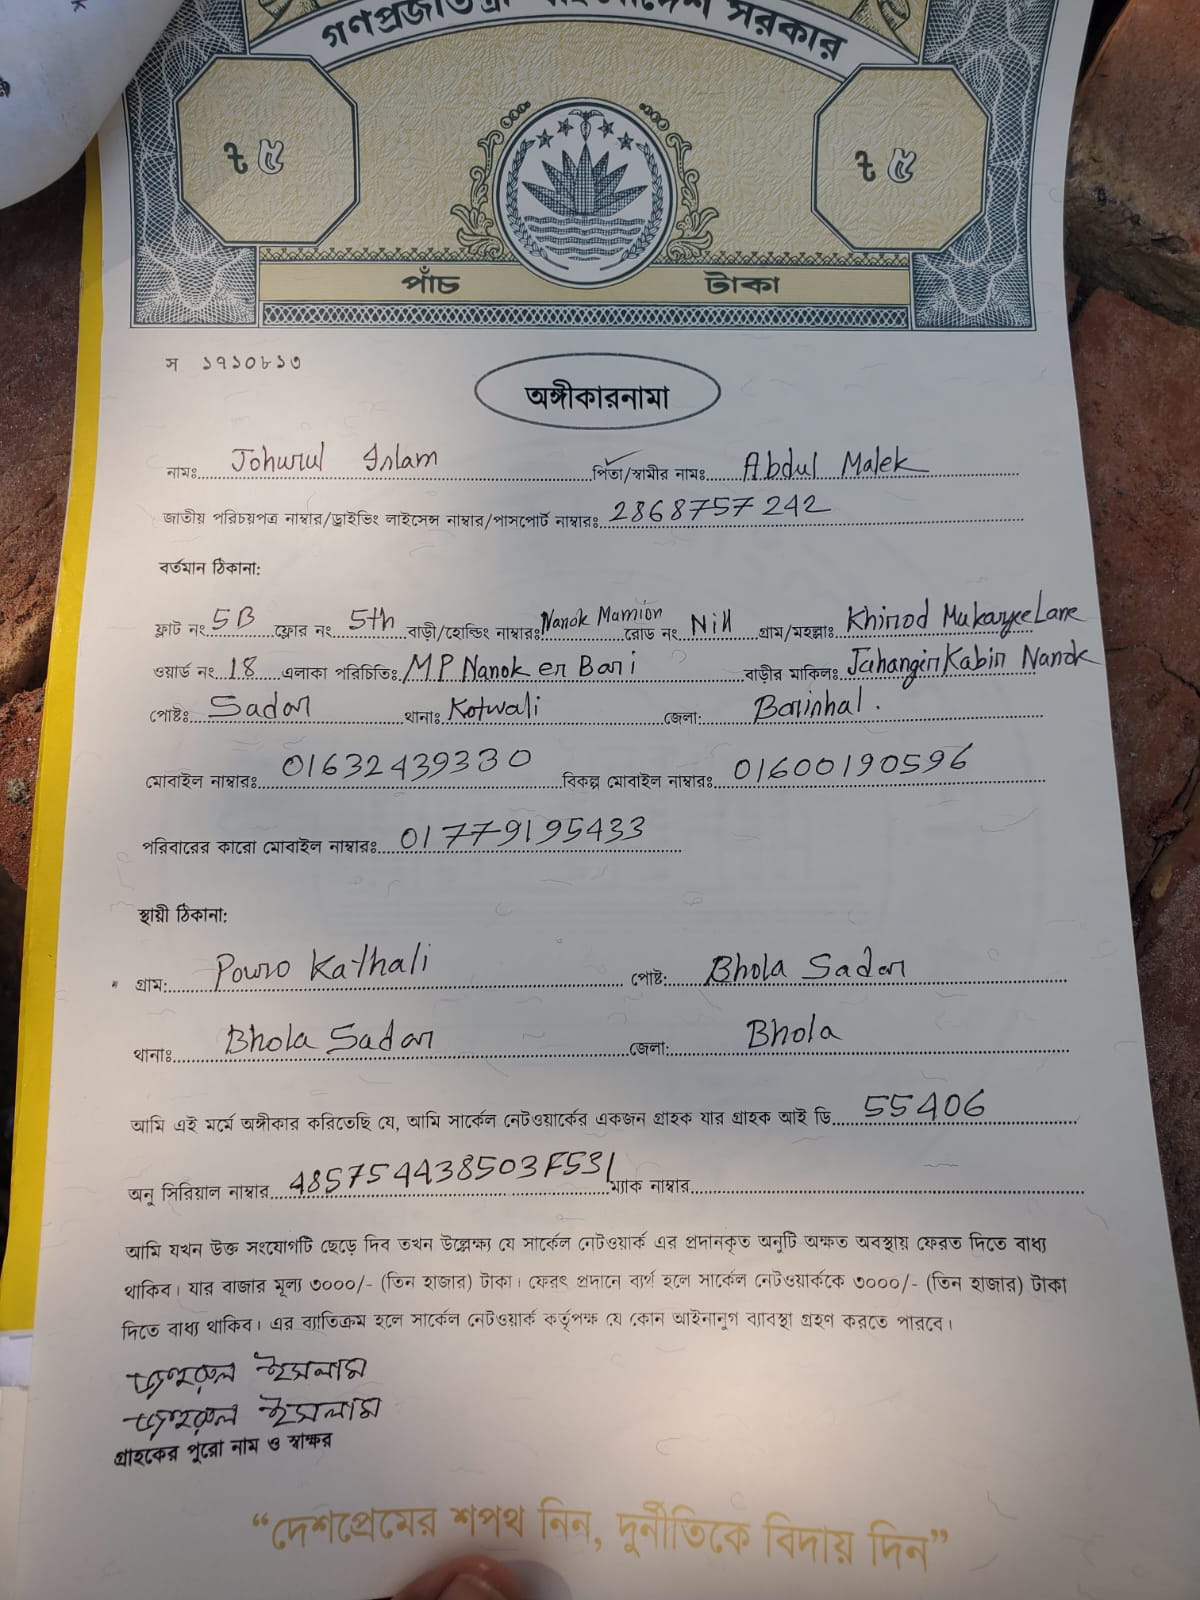 গণপ্রজাতন্ত্রী বাংলাদেশ সরকার
৳ ৫ ৳ ৫
পাঁচ টাকা
স ১৭১০৮১৩
অঙ্গীকারনামা
নামঃ Johurul Islam পিতা/স্বামীর নামঃ Abdul Malek
জাতীয় পরিচয়পত্র নাম্বার/ড্রাইভিং লাইসেন্স নাম্বার/পাসপোর্ট নাম্বারঃ 2868757242
বর্তমান ঠিকানা:
ফ্লাট নং 5B ফ্লোর নং 5th বাড়ী/হোল্ডিং নাম্বারঃ Nanok Mamion রোড নং Nill গ্রাম/মহল্লাঃ Khirod Mukaryee Lane
ওয়ার্ড নং 18 এলাকা পরিচিতিঃ MP Nanok er Bari বাড়ীর মাকিলঃ Jahangir Kabir Nanok
পোষ্টঃ Sadar থানাঃ Kotwali জেলা: Barishal.
মোবাইল নাম্বারঃ 01632439330 বিকল্প মোবাইল নাম্বারঃ 01600190596
পরিবারের কারো মোবাইল নাম্বারঃ 01779195433
স্থায়ী ঠিকানা:
গ্রাম: Pouro Kathali পোষ্ট: Bhola Sadar
থানাঃ Bhola Sadar জেলা: Bhola
আমি এই মর্মে অঙ্গীকার করিতেছি যে, আমি সার্কেল নেটওয়ার্কের একজন গ্রাহক যার গ্রাহক আই ডি 55406
অনু সিরিয়াল নাম্বার 485754438503F531 ম্যাক নাম্বার
আমি যখন উক্ত সংযোগটি ছেড়ে দিব তখন উল্লেক্ষ্য যে সার্কেল নেটওয়ার্ক এর প্রদানকৃত অনুটি অক্ষত অবস্থায় ফেরত দিতে বাধ্য
থাকিব। যার বাজার মূল্য ৩০০০/- (তিন হাজার) টাকা। ফেরৎ প্রদানে ব্যর্থ হলে সার্কেল নেটওয়ার্ককে ৩০০০/- (তিন হাজার) টাকা
দিতে বাধ্য থাকিব। এর ব্যাতিক্রম হলে সার্কেল নেটওয়ার্ক কর্তৃপক্ষ যে কোন আইনানুগ ব্যাবস্থা গ্রহণ করতে পারবে।
জহুরুল ইসলাম
জহুরুল ইসলাম
গ্রাহকের পুরো নাম ও স্বাক্ষর
“দেশপ্রেমের শপথ নিন, দুর্নীতিকে বিদায় দিন”